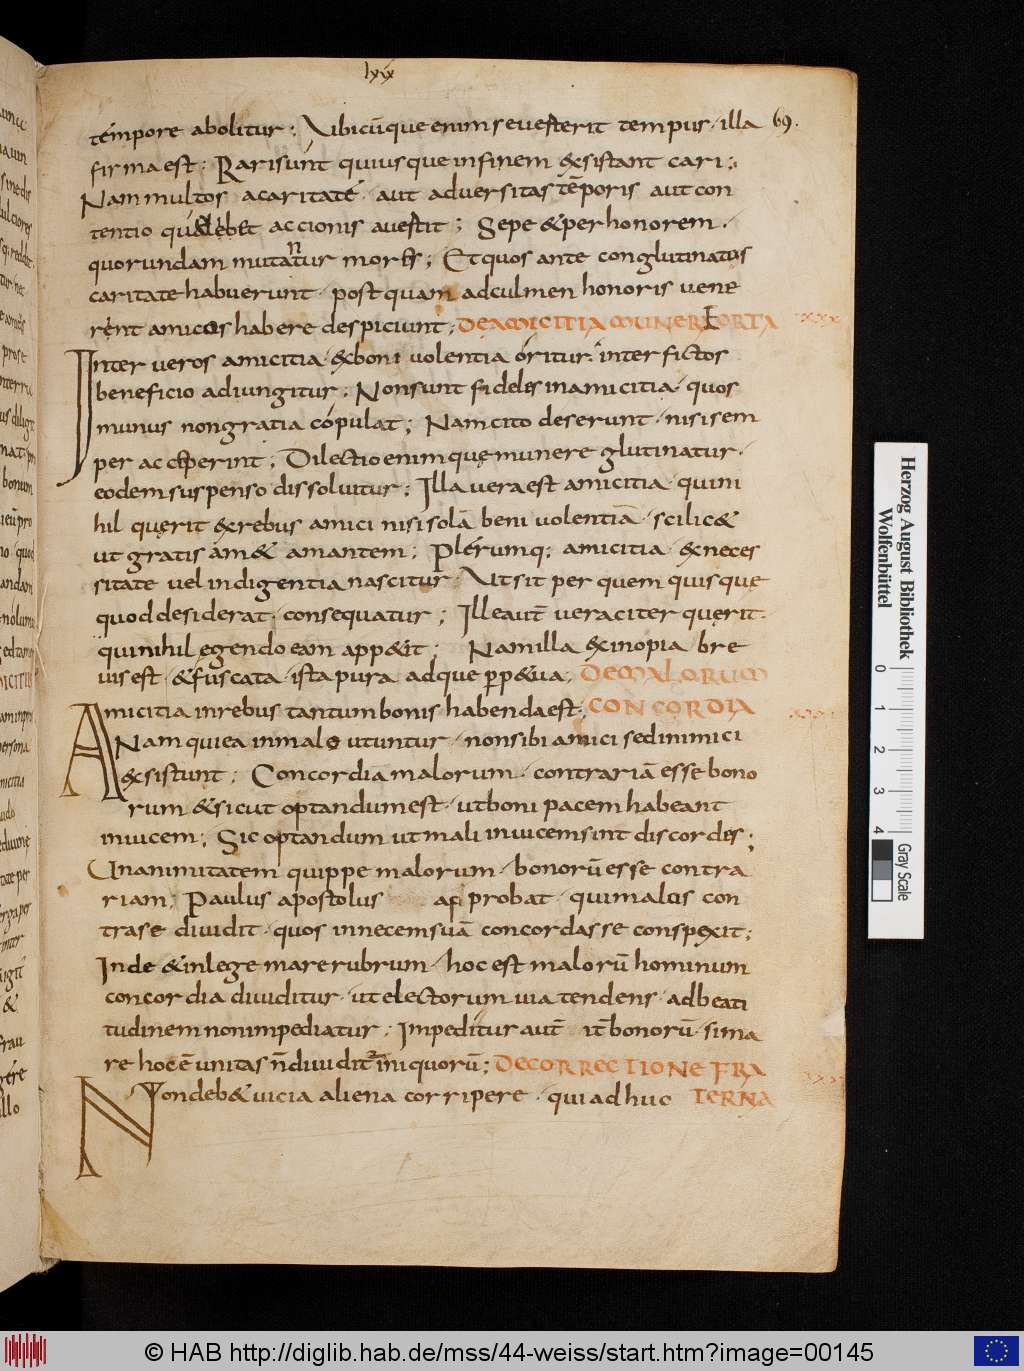 lxix
tempore abolitur; Vbicūque enim se uesterit tempus · illa 69.
firma est; Rari sunt quiusque in finem exsistant cari;
Nam multos a caritate · aut aduersitas tēporis aut con
tentio accionis auestit; Sepe & per honorem ·
quorundam mutantur mores; Et quos ante conglutinatos
caritate habuerunt · postquam ad culmen honoris uene
rent amicos habere despiciunt; DE AMICITIA MUNERE ORTA
Inter ueros amicitia · ex beni uolentia oritur · inter fictos
beneficio adiungitur; Non sunt fideles in amicitia · quos
munus non gratia copulat; Nam cito deserunt · nisi sem
per acceperint; Dilectio enim que munere glutinatur ·
eodem suspenso dissoluitur; Illa uera est amicitia · qui ni
hil querit ex rebus amici nisi solā beni uolentiā · scilic&
ut gratis am& amantem; Plerumq; amicitia · ex neces
sitate uel indigentia nascitur · Vt sit per quem quisque
quod desiderat · consequatur; Ille aut̄ ueraciter querit ·
qui nihil egendo eam app&it; Nam illa ex inopia bre
uis est · & fuscata · ista pura adque perp&ua; DE MALORUM
Amicitia in rebus tantum bonis habenda est; CONCORDIA
Nam qui ea in malo utuntur · non sibi amici sed inimici
exsistunt; Concordia malorum · contrariā esse bono
rum & sicut optandum est · ut boni pacem habeant
inuicem; Sic optandum ut mali inuicem sint discordes;
Unanimitatem quippe malorum · bonorū esse contra
riam; Paulus apostolus probat · qui malos con
tra se diuidit · quos in necem suā concordasse conspexit;
Inde & in lege mare rubrum · hoc est malorū hominum
concordia diuiditur · ut electorum uia tendens · ad beati
tudinem non impediatur; Impeditur aut̄ it̄ bonorū · si ma
re hoc ē unitas n̄ diuidit iniquorū; DE CORRECTIONE FRA
Non deb& uicia aliena corripere · qui adhuc TERNA
Herzog August Bibliothek
Wolfenbüttel
0 1 2 3 4
Gray Scale
© HAB http://diglib.hab.de/mss/44-weiss/start.htm?image=00145